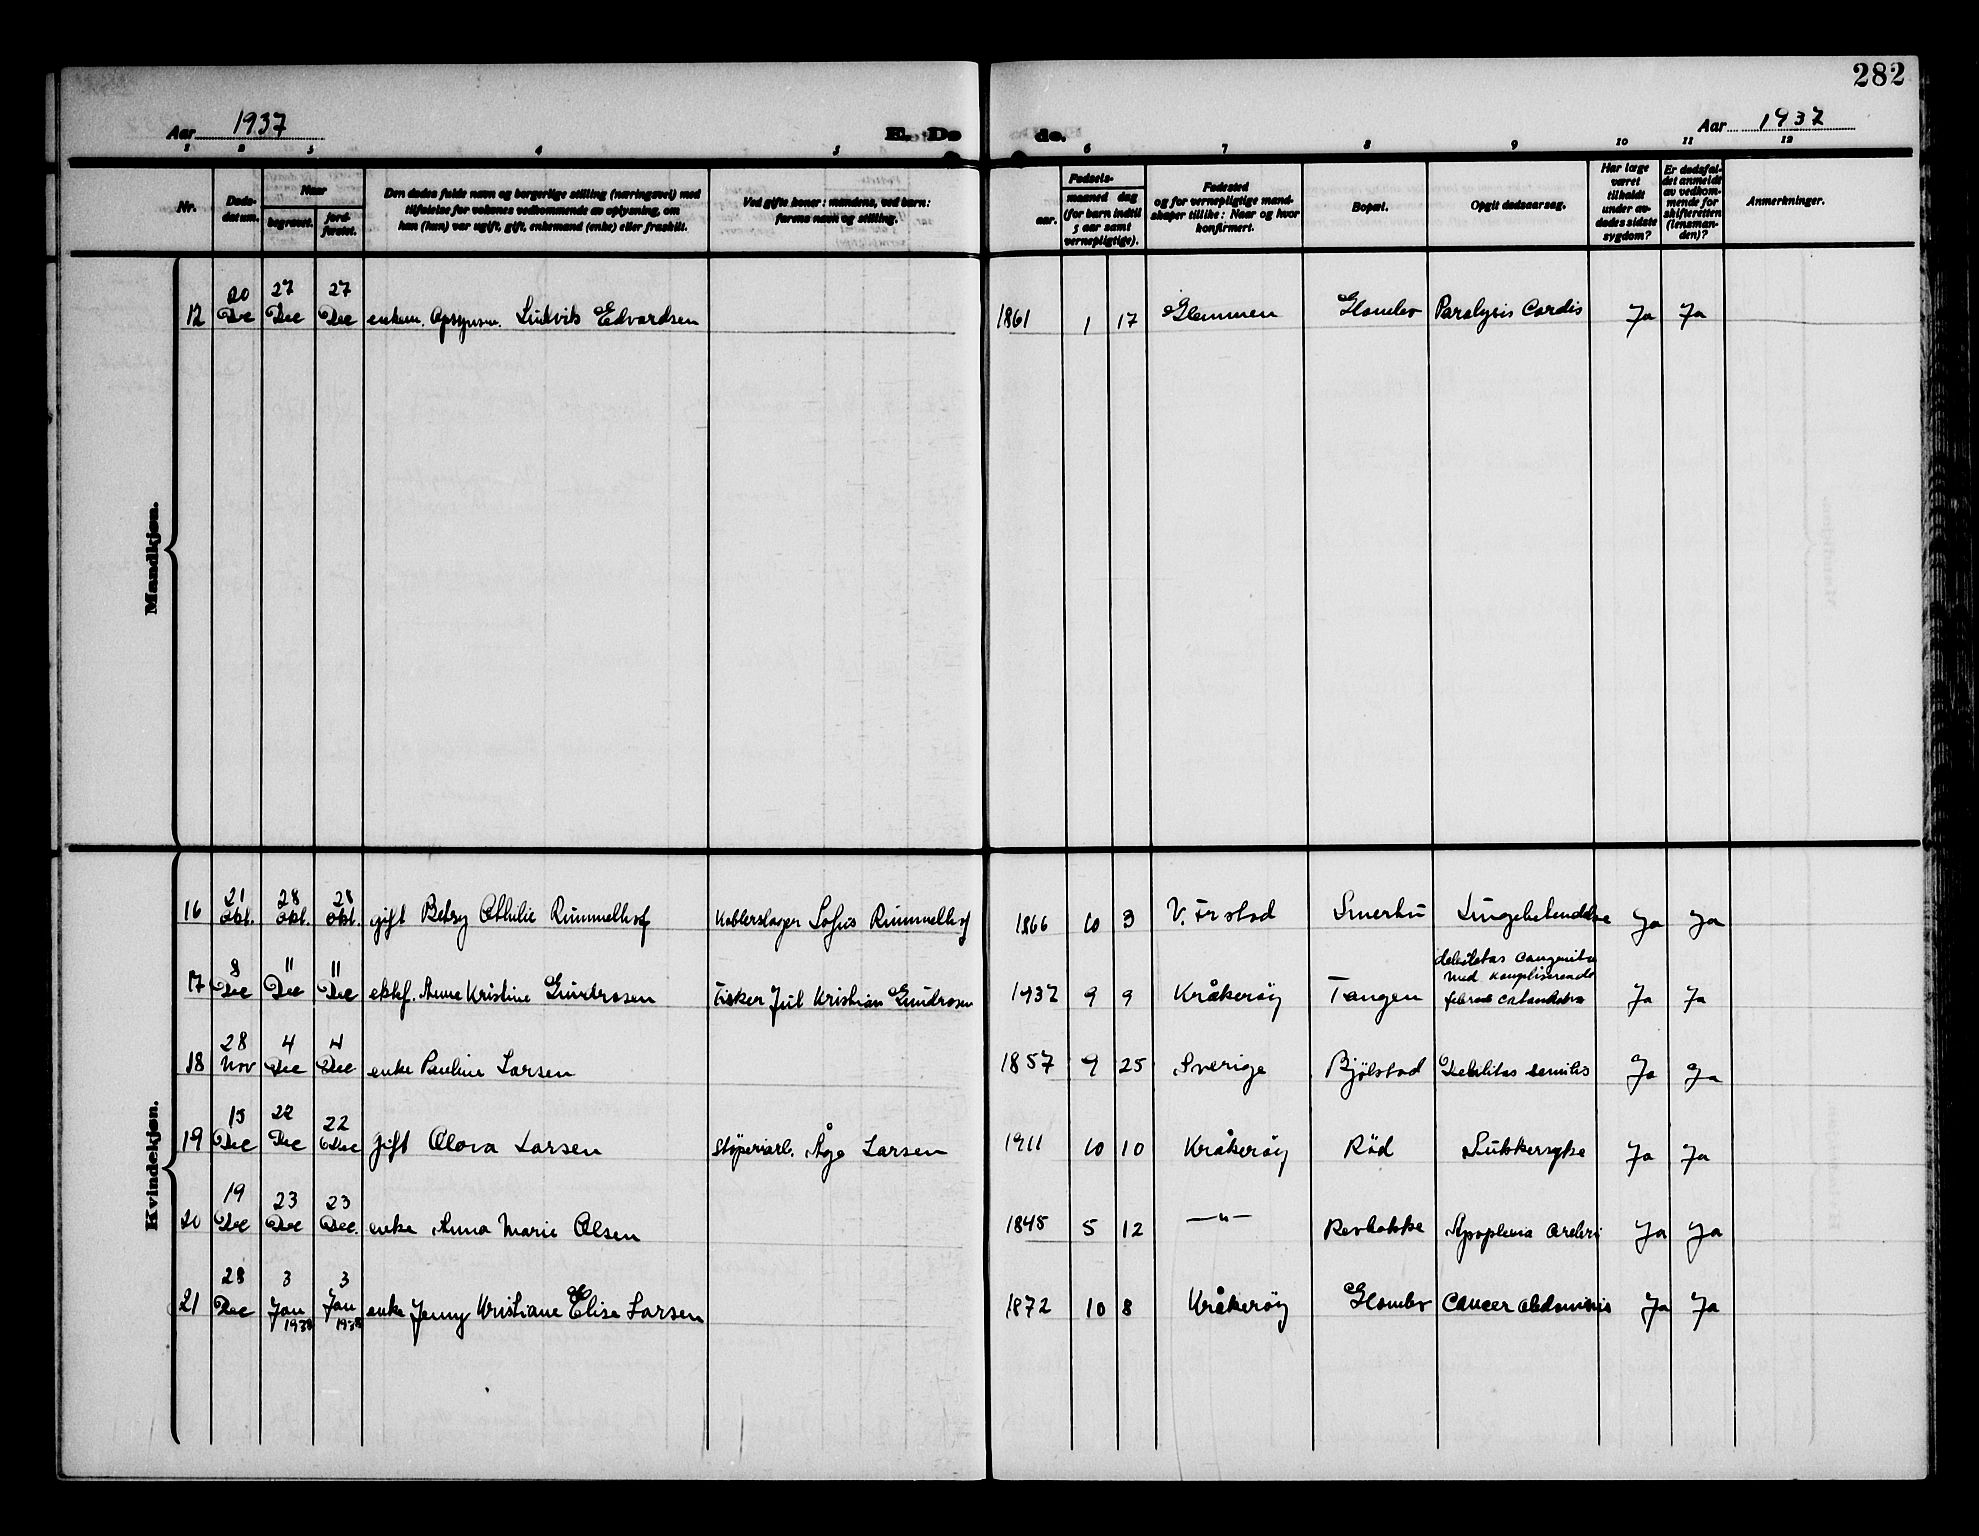 282
Aar 1937
E. Dø
de.
Aar 1937
1 2 3 4 5 6 7 8 9 10 11 12
Nr.
Døds-
datum.
Naar
begravet.
jord-
fæstet.
Den dødes fulde navn og borgerlige stilling (næringsvei) med
tilføielse for voksnes vedkommende av oplysning, om
han (hun) var ugift, gift, enkemand (enke) eller fraskilt.
Ved gifte koner: mandens, ved børn:
farens navn og stilling.
Fødsels-
aar.
maaned dag
(for barn indtil
5 aar samt
vernepligtige).
Fødested
og for vernepligtige mand-
skaper tillike: Naar og hvor
konfirmert.
Bopæl.
Opgit dødsaarsag.
Har læge
været
tilkaldt
under av-
dødes sidste
sygdom?
Er dødsfal-
det anmeldt
av vedkom-
mende for
skifteretten
(lensman-
den)?
Anmerkninger.
Mandkjøn.
12 20 Dec 27 Dec 27 Dec enkem. Opsynsm. Ludvik Edvardsen 1861 1 17 Glemmen Glombo Paralysis Cordis Ja Ja
Kvindekjøn.
16 21 okt. 28 okt. 28 okt. gift Betsy Othilie Rummelhof Kobberslager Sofus Rummelhof 1866 10 3 V. Frstad Smertu Lungebetendelse Ja Ja
17 8 Dec 11 Dec 11 Dec ektef. Anne Kristine Gundrosen Fisker Jul Kristian Gundrosen 1937 9 9 Kråkerøy Tangen debilitas congenita
med kompliserende
Ja Ja
18 28 Nov 4 Dec 4 Dec enke Pauline Larsen 1857 9 25 Sverige Bjølstad Debilitas senilis Ja Ja
19 15 Dec 22 Dec 22 Dec gift Alova Larsen Støperiarb. Åge Larsen 1911 10 10 Kråkerøy Rød Sukkersyke Ja Ja
20 19 Dec 23 Dec 23 Dec. enke Anna Marie Olsen 1845 5 12 —"— Revbakke Apoplexia cerebri Ja Ja
21 28 Dec 3 Jan 1938 3 Jan 1938 enke Jenny Kristiane Elise Larsen 1872 10 8 Kråkerøy Glombo Cancer abdominis Ja Ja